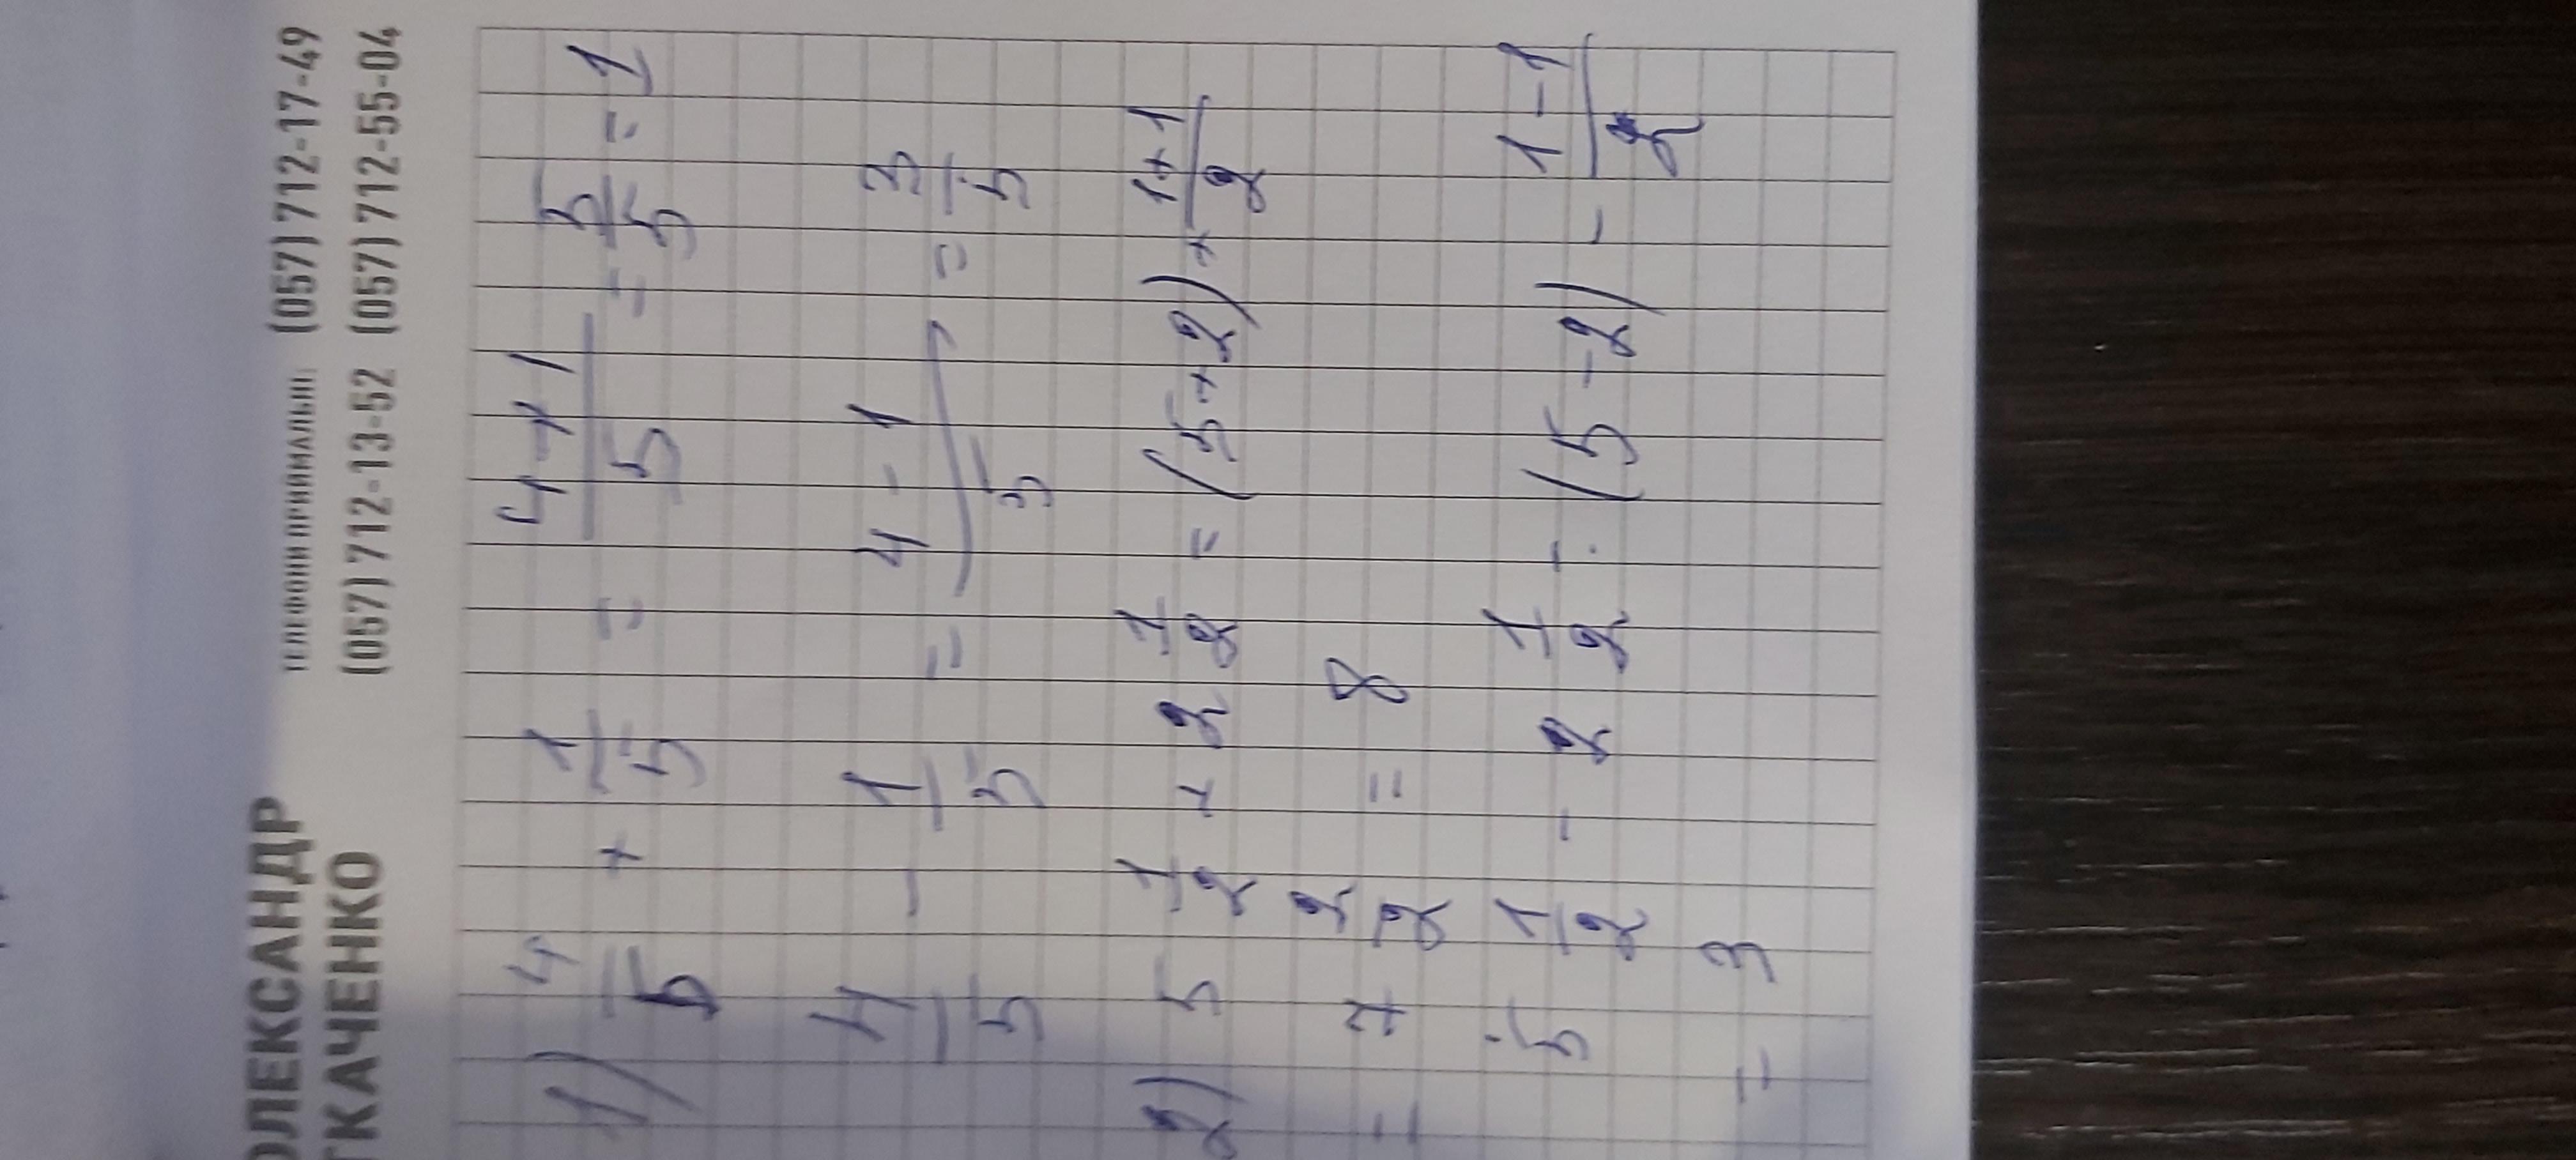 ОЛЕКСАНДР
ТКАЧЕНКО
ТЕЛЕФОНИ ПРИЙМАЛЬНІ: (057) 712-17-49
(057) 712-13-52 (057) 712-55-04
1) 4/5 + 1/5 = (4+1)/5 = 5/5 = 1
4/5 - 1/5 = (4-1)/5 = 3/5
2) 5 1/2 + 2 1/2 = (5+2) + (1+1)/2
= 7 2/2 = 8
5 1/2 - 2 1/2 = (5-2) - (1-1)/2
= 3